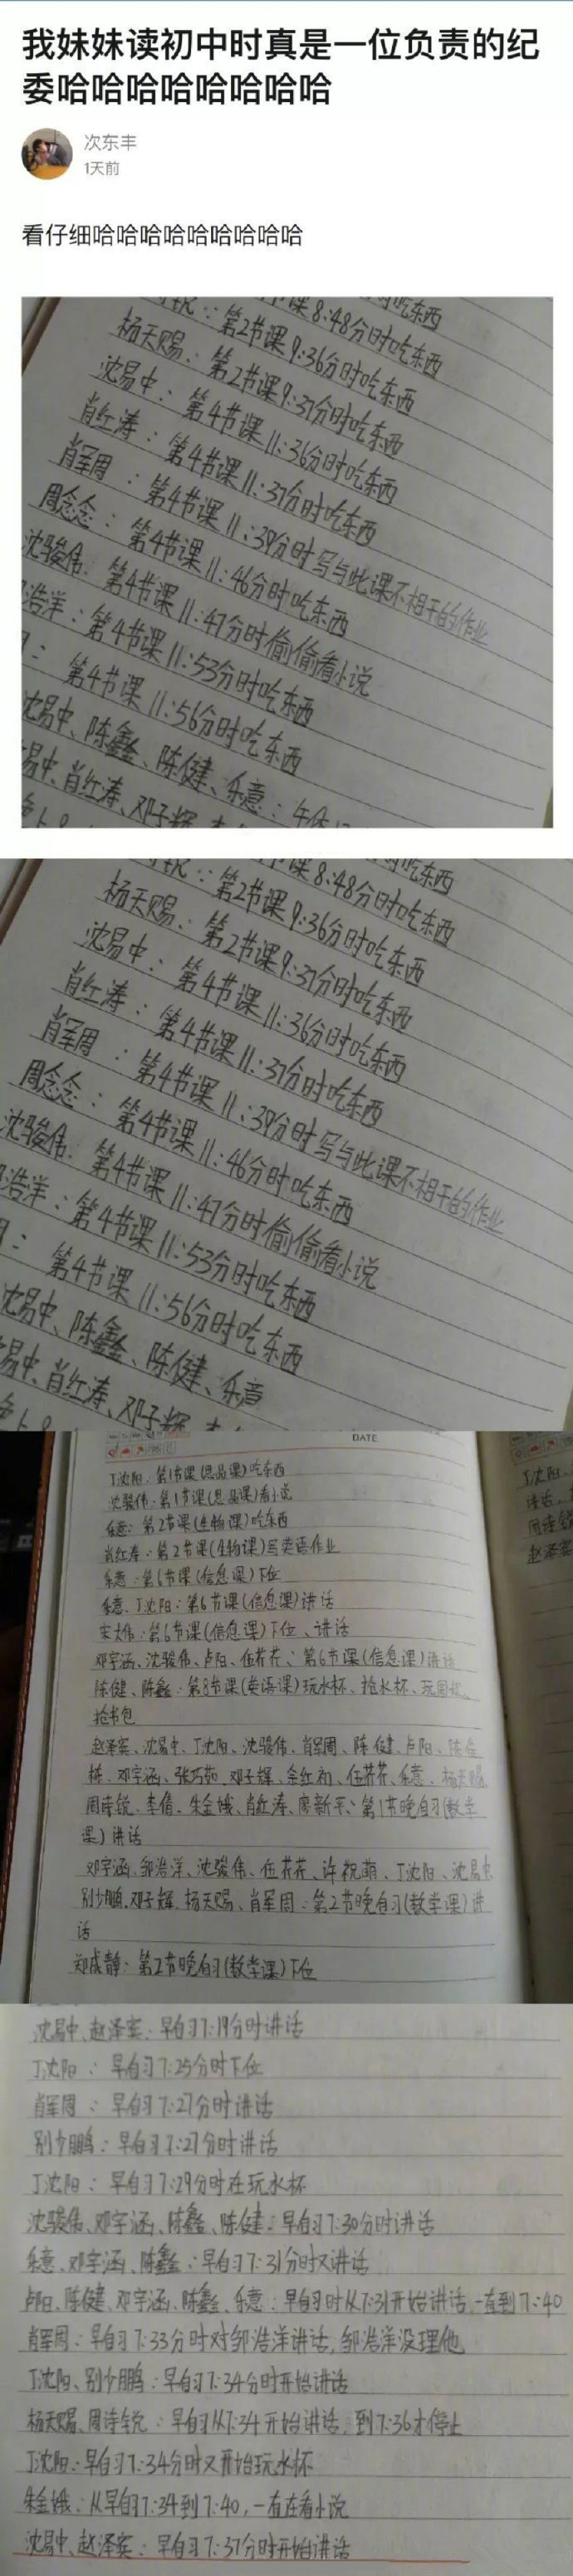 我妹妹读初中时真是一位负责的纪
委哈哈哈哈哈哈哈哈
次东丰
1天前
看仔细哈哈哈哈哈哈哈哈哈
课8:48分时吃东西
锐:第2节课9:36分时吃东西
杨天赐:第2节课9:37分时吃东西
沈易中:第4节课11:36分时吃东西
肖红涛:第4节课11:37分时吃东西
肖军周:第4节课11:39分时写与此课不相干的作业
周念念:第4节课11:46分时吃东西
沈骏伟:第4节课11:47分时偷偷看小说
浩洋:第4节课11:53分时吃东西
:第4节课11:56分时吃东西
沈易中、陈鑫、陈健、乐意:午休
易中、肖红涛、邓子辉
课8:48分时吃东西
锐:第2节课9:36分时吃东西
杨天赐:第2节课9:37分时吃东西
沈易中:第4节课11:36分时吃东西
肖红涛:第4节课11:37分时吃东西
肖军周:第4节课11:39分时写与此课不相干的作业
周念念:第4节课11:46分时吃东西
沈骏伟:第4节课11:47分时偷偷看小说
浩洋:第4节课11:53分时吃东西
:第4节课11:56分时吃东西
沈易中、陈鑫、陈健、乐意
易中、肖红涛、邓子辉
DATE
丁沈阳:第1节课(思品课)吃东西
沈骏伟:第1节课(思品课)看小说
乐意:第2节课(生物课)吃东西
肖红涛:第2节课(生物课)写英语作业
乐意:第6节课(信息课)下位
乐意、丁沈阳:第6节课(信息课)讲话
宋大伟:第6节课(信息课)下位、讲话
邓宇涵、沈骏伟、卢阳、伍芹芹:第6节课(信息课)讲话
陈健、陈鑫:第8节课(英语课)玩水杯、抢水杯、玩圆规、
抢书包
赵泽宾、沈易中、丁沈阳、沈骏伟、肖军周、陈健、卢阳、陈金
栋、邓宇涵、张巧茹、邓子辉、余红初、伍芹芹、乐意、杨天赐、
周诗锐、李倩、朱金娥、肖红涛、廖新平:第1节晚自习(数学
课)讲话
邓宇涵、邹浩洋、沈骏伟、伍芹芹、许祝萌、丁沈阳、沈易中、
别少鹏、邓子辉、杨天赐、肖军周:第2节晚自习(数学课)讲
话
郑成静:第2节晚自习(数学课)下位
丁沈阳、
讲话、
周诗锐
赵泽宾
沈易中、赵泽宾:早自习7:19分时讲话
丁沈阳:早自习7:25分时下位
肖军周:早自习7:27分时讲话
别少鹏:早自习7:27分时讲话
丁沈阳:早自习7:29分时在玩水杯
沈骏伟、邓宇涵、陈鑫、陈健:早自习7:30分时讲话
乐意、邓宇涵、陈鑫:早自习7:31分时又讲话
卢阳、陈健、邓宇涵、陈鑫、乐意:早自习时从7:31开始讲话,一直到7:40
肖军周:早自习7:33分时对邹浩洋讲话,邹浩洋没理他
丁沈阳、别少鹏:早自习7:34分时开始讲话
杨天赐、周诗锐:早自习从7:34开始讲话,到7:36才停止
丁沈阳:早自习7:34分时又开始玩水杯
朱金娥:从早自习7:34到7:40,一直在看小说
沈易中、赵泽宾:早自习7:37分时开始讲话